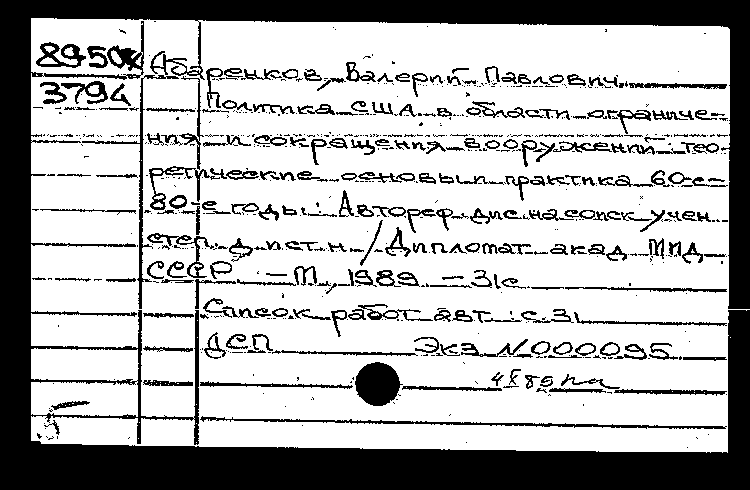 8950
3794
Абаренков, Валерий Павлович
Политика США в области ограниче-
ния и сокращения вооружений: тео-
ретические основы и практика 60-е-
80-е годы: Автореф. дис. на соиск. учен.
степ. д. ист. н. / Дипломат. акад. МИД
СССР. - М., 1989. - 31с.
Список работ авт.: с. 31
ДСП Экз. N000095
4 X 89